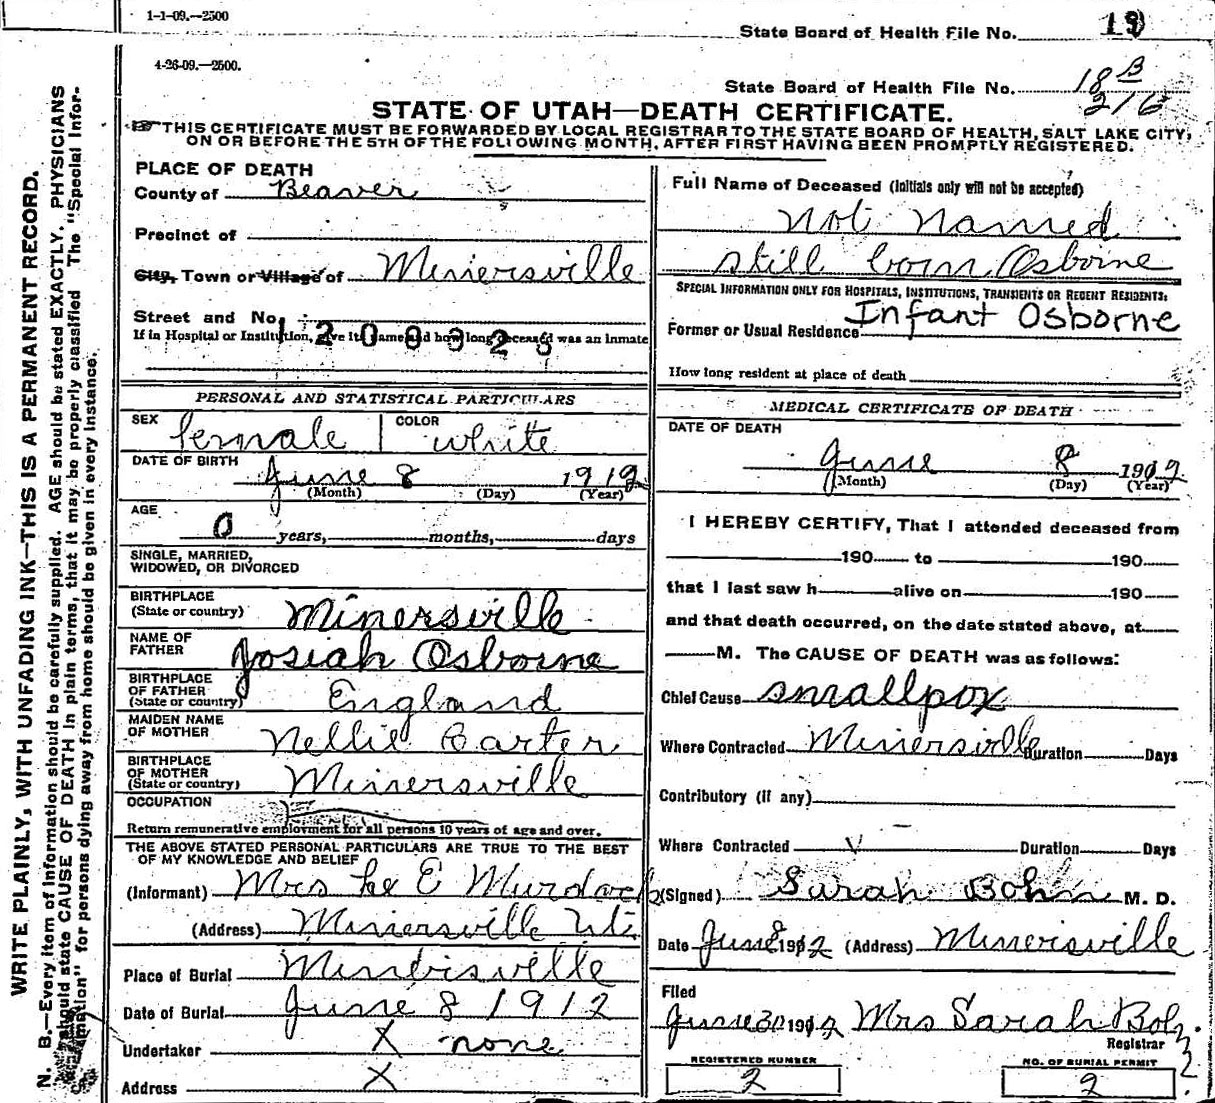 1-1-09.—2500
State Board of Health File No. 19
4-26-09.—2500.
State Board of Health File No. 18 B
216
STATE OF UTAH—DEATH CERTIFICATE.
THIS CERTIFICATE MUST BE FORWARDED BY LOCAL REGISTRAR TO THE STATE BOARD OF HEALTH, SALT LAKE CITY,
ON OR BEFORE THE 5TH OF THE FOLLOWING MONTH, AFTER FIRST HAVING BEEN PROMPTLY REGISTERED.
WRITE PLAINLY, WITH UNFADING INK—THIS IS A PERMANENT RECORD.
N. B.—Every item of information should be carefully supplied. AGE should be stated EXACTLY. PHYSICIANS
should state CAUSE OF DEATH in plain terms, that it may be properly classified. The "Special Infor-
mation" for persons dying away from home should be given in every instance.
PLACE OF DEATH
County of Beaver
Precinct of
City, Town or Village of Minersville
Street and No.
1208325
If in Hospital or Institution, give its name and how long deceased was an inmate
PERSONAL AND STATISTICAL PARTICULARS
SEX female COLOR white
DATE OF BIRTH June 8 1912
(Month) (Day) (Year)
AGE
0 years, months, days
SINGLE, MARRIED,
WIDOWED, OR DIVORCED
BIRTHPLACE
(State or country) Minersville
NAME OF
FATHER Josiah Osborne
BIRTHPLACE
OF FATHER
(State or country) England
MAIDEN NAME
OF MOTHER Nellie Carter
BIRTHPLACE
OF MOTHER
(State or country) Minersville
OCCUPATION
Return remunerative employment for all persons 10 years of age and over.
THE ABOVE STATED PERSONAL PARTICULARS ARE TRUE TO THE BEST
OF MY KNOWLEDGE AND BELIEF
(Informant) Mrs E Murdock
(Address) Minersville
Place of Burial Minersville
Date of Burial June 8 1912
Undertaker X none
Address X
Full Name of Deceased (Initials only will not be accepted)
Not Named
still born Osborne
SPECIAL INFORMATION ONLY FOR HOSPITALS, INSTITUTIONS, TRANSIENTS OR RECENT RESIDENTS:
Former or Usual Residence Infant Osborne
How long resident at place of death
MEDICAL CERTIFICATE OF DEATH
DATE OF DEATH
June 8 1912
(Month) (Day) (Year)
I HEREBY CERTIFY, That I attended deceased from
190 to 190
that I last saw h alive on 190
and that death occurred, on the date stated above, at
M. The CAUSE OF DEATH was as follows:
Chief Cause smallpox
Where Contracted Minersville Duration Days
Contributory (if any)
Where Contracted Duration Days
(Signed) Sarah Bohn M. D.
Date June 8 1912 (Address) Minersville
Filed
June 30 1912 Mrs Sarah Bohn
Registrar
REGISTERED NUMBER
2
NO. OF BURIAL PERMIT
2